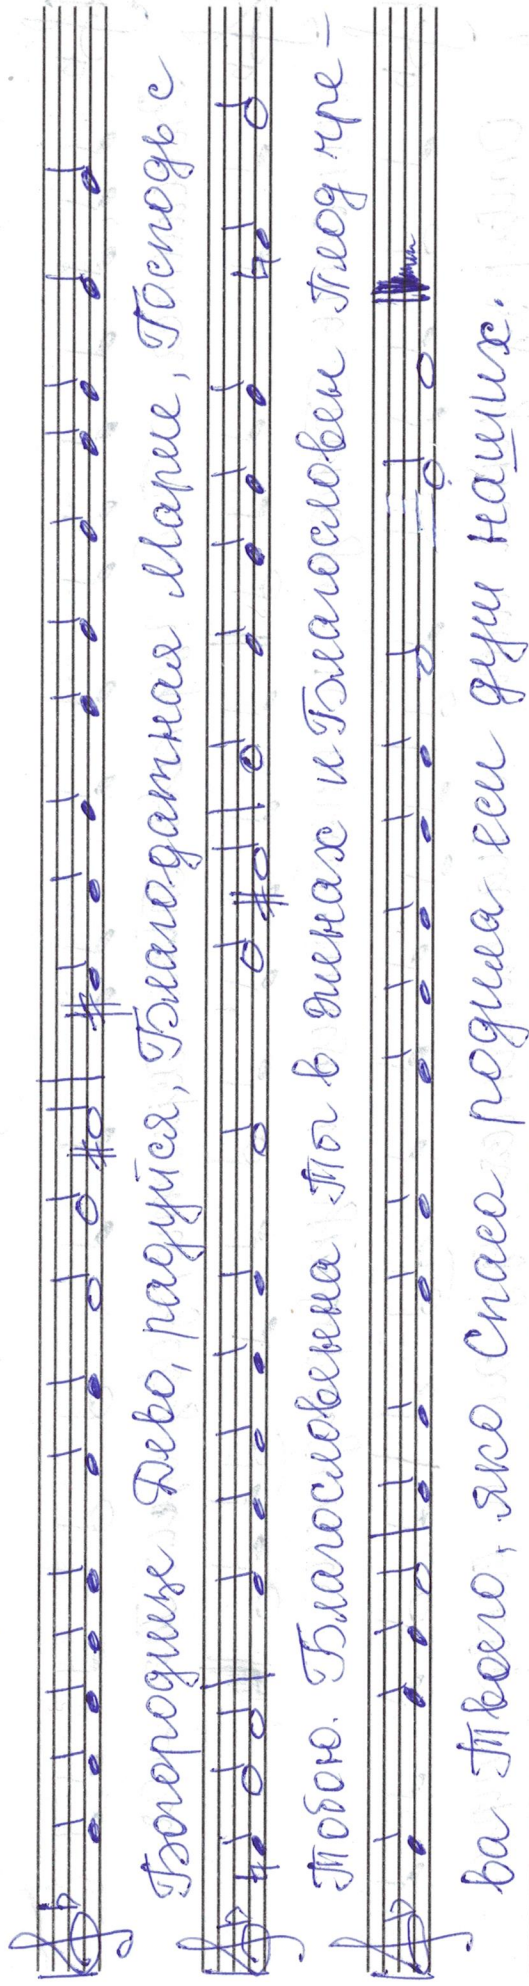 Богородице Дево, радуйся, Благодатная Марие, Господь с
Тобою. Благословенна Ты в женах и Благословен Плод чре-
ва Твоего, яко Спаса родила еси душ наших.